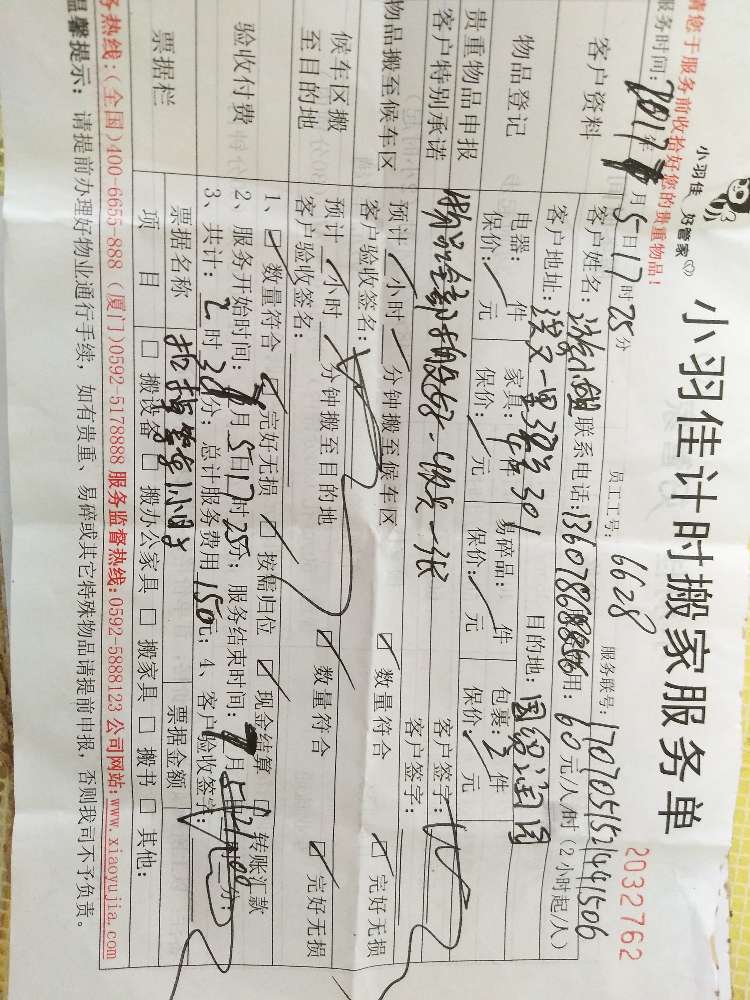 小羽佳计时搬家服务单
2032762
小羽佳 好管家
请您于服务前收拾好您的贵重物品！
员工工号：6628 服务联号：170705152441506
服务时间：2017年 月5日17时25分
客户资料
客户姓名： 联系电话：13607868856 费用：60元/人/时（2小时起/人）
客户地址： 301 目的地：国贸润园
物品登记
电器： 件 家具： 件 易碎品： 件 包裹：2件
保价： 元 保价： 元 保价： 元 保价： 元
贵重物品申报
客户特别承诺
客户签字：
物品搬至候车区
预计 小时 分钟搬至候车区 客户签字：
客户验收签名： 数量符合 完好无损
候车区搬
至目的地
预计 小时 分钟搬至目的地
客户验收签名： 数量符合 完好无损
验收付费
1、 数量符合 完好无损 按需归位 现金结算 转账汇款
2、服务开始时间： 月5日17时25分；服务结束时间： 月5日 分；
3、共计：2时 分；总计服务费用150元；4、客户验收签字：
票据栏
票据名称 票据金额
项 目 □ 搬设备 □ 搬办公家具 □ 搬家具 □ 搬书 □ 其他：
服务热线：（全国）400-6655-888（厦门）0592-5178888 服务监督热线：0592-5888123 公司网站：www.xiaoyujia.com
温馨提示： 请提前办理好物业通行手续，如有贵重、易碎或其它特殊物品请提前申报，否则我司不予负责。